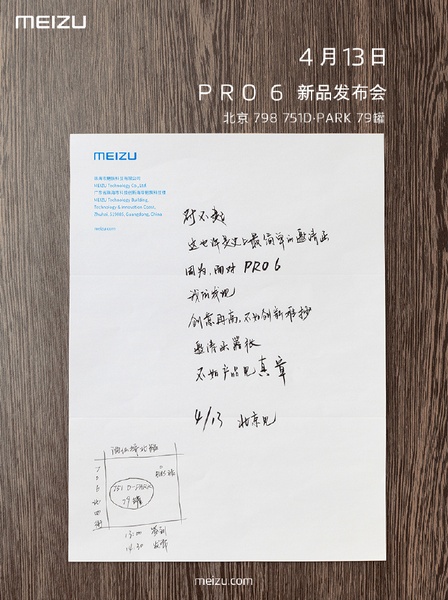 MEIZU
4月13日
PRO 6 新品发布会
北京 798 751D·PARK 79罐
MEIZU
珠海市魅族科技有限公司
MEIZU Technology Co., Ltd
MEIZU Technology Building,
Technology & Innovation Coast,
Zhuhai, 519085, Guangdong, China
meizu.com
对不起
这也许是史上最简单的邀请函
因为,面对 PRO 6
我们发现
创意再高,不如创新难抄
邀请函嚣张
不如产品见真章
4/13 北京见
酒仙桥北路
751 D-PARK
79罐
13:00 签到
14:30 发布
meizu.com